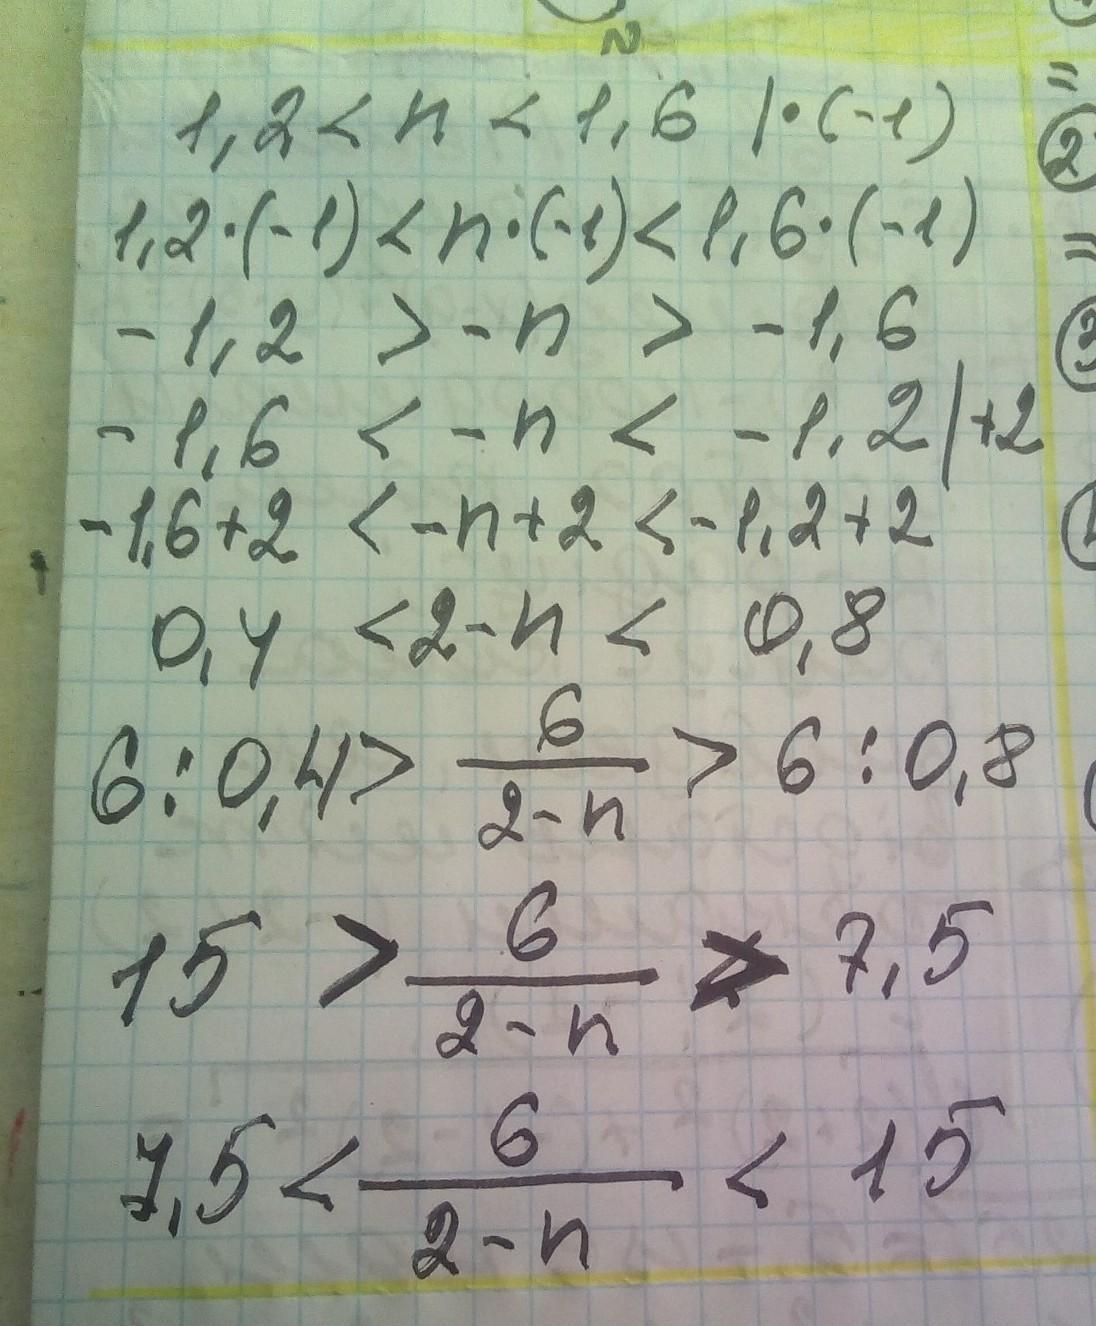 1,2 < n < 1,6 | · (-1)
1,2·(-1) < n·(-1) < 1,6·(-1)
-1,2 > -n > -1,6
-1,6 < -n < -1,2 | +2
-1,6+2 < -n+2 < -1,2+2
0,4 < 2-n < 0,8
6:0,4 > 6/(2-n) > 6:0,8
15 > 6/(2-n) > 7,5
7,5 < 6/(2-n) < 15
=
2
=
3